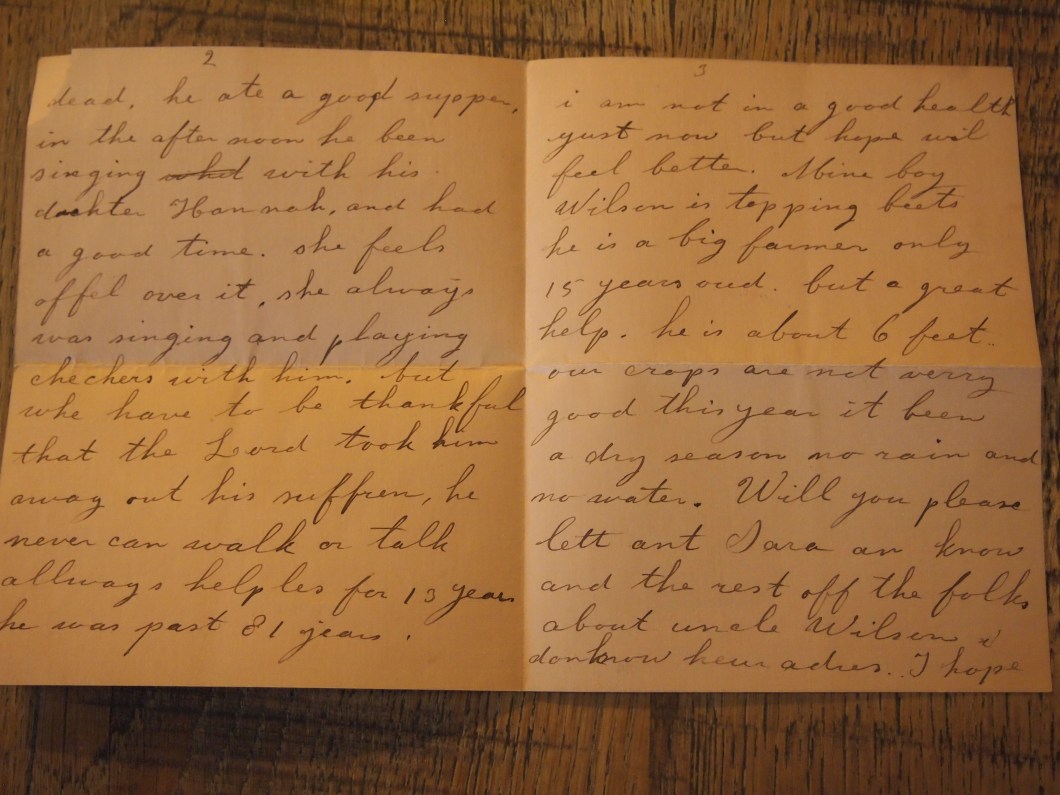 2
dead, he ate a good supper,
in the after noon he been
singing with his
dochter Hannah, and had
a good time. she feels
offel over it, she always
was singing and playing
checkers with him. but
whe have to be thankful
that the Lord took him
away out his suffren, he
never can walk or talk
allways helples for 13 years
he was past 81 years.
3
i am not in a good health
yust now but hope wil
feel better. Mine boy
Wilson is topping beets
he is a big farmer only
15 years oud. but a great
help. he is about 6 feet.
our crops are not verry
good this year it been
a dry season no rain and
no water. Will you please
lett ant Sara an know
and the rest off the folks
about uncle Wilson i
donknow heur adres.. I hope